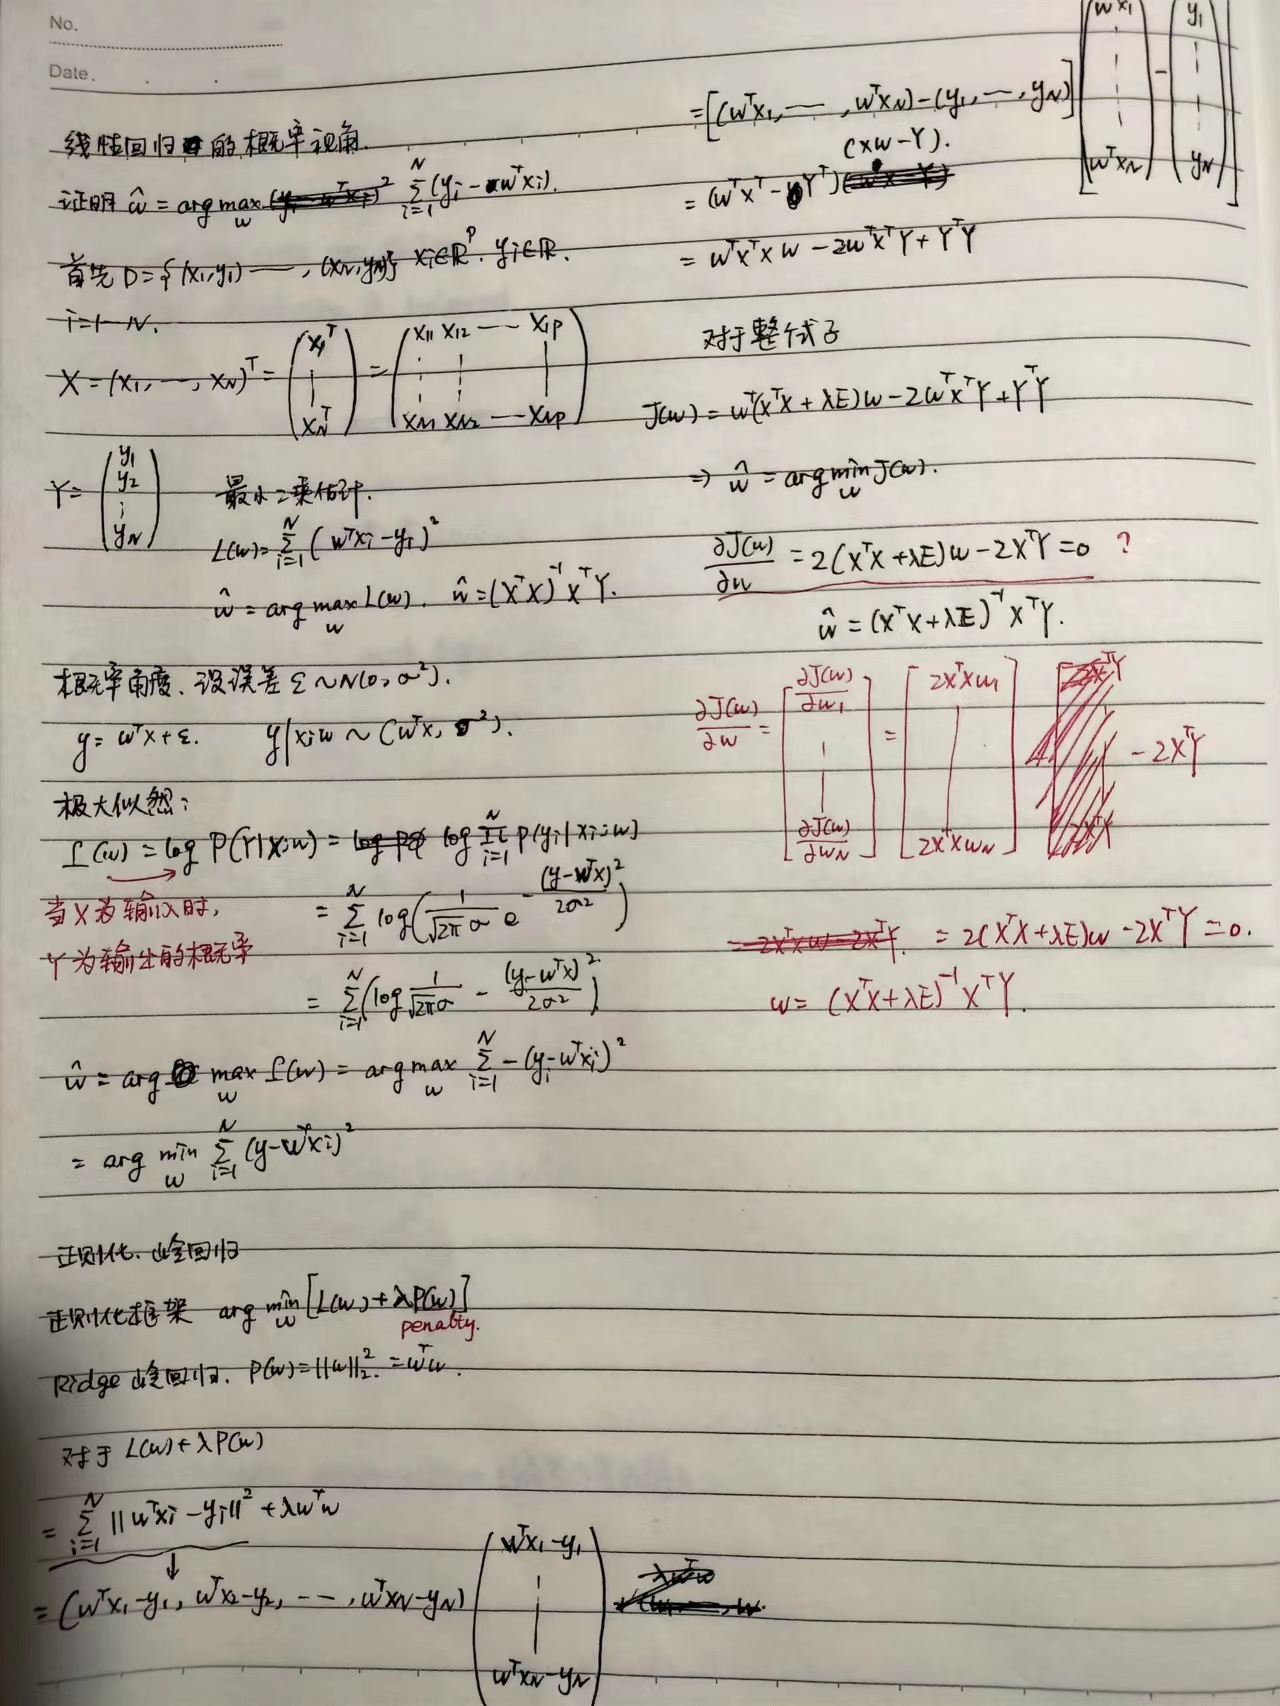 No.
Date.
线性回归的概率视角.
证明 ŵ = arg max_w Σ_{i=1}^N (y_i - w^T x_i).
首先 D = {(x_1, y_1) — , (x_N, y_N)} x_i∈R^p. y_i∈R.
i=1—N.
X = (x_1, —, x_N)^T = (x_1^T | x_N^T) = (x_11 x_12 -- x_1p ⋮ x_N1 x_N2 -- x_Np)
Y = (y_1 y_2 ⋮ y_N)
最小二乘估计.
L(w) = Σ_{i=1}^N (w^T x_i - y_i)^2
ŵ = arg max_w L(w). ŵ = (X^T X)^{-1} X^T Y.
概率角度、设误差 ε ~ N(0, σ^2).
y = w^T x + ε. y|x;w ~ (w^T x, σ^2).
极大似然:
L(w) = log P(Y|X;w) = log Π_{i=1}^N P(y_i|x_i;w)
当X为输入时,
Y为输出的概率
= Σ_{i=1}^N log(1/(√2π σ) e^{-(y-w^T x)^2/2σ^2})
= Σ_{i=1}^N (log 1/(√2π σ) - (y-w^T x)^2/2σ^2)
ŵ = arg max_w L(w) = arg max_w Σ_{i=1}^N -(y_i - w^T x_i)^2
= arg min_w Σ_{i=1}^N (y - w^T x_i)^2
正则化、岭回归
正则化框架 arg min_w [L(w) + λP(w)]
penalty.
Ridge 岭回归. P(w) = ||w||_2^2. = w^T w.
对于 L(w) + λP(w)
= Σ_{i=1}^N ||w^T x_i - y_i||^2 + λw^T w
= (w^T x_1 - y_1, w^T x_2 - y_2, --, w^T x_N - y_N) (w^T x_1 - y_1 | w^T x_N - y_N)
= [(w^T x_1, —, w^T x_N) - (y_1, —, y_N)] [(w x_1 ⋮ w^T x_N) - (y_1 ⋮ y_N)]
(XW - Y).
= (w^T X^T - Y^T)
= w^T X^T X w - 2w^T X^T Y + Y^T Y
对于整式子
J(w) = w^T(X^T X + λE)w - 2w^T X^T Y + Y^T Y
⇒ ŵ = arg min_w J(w).
∂J(w)/∂w = 2(X^T X + λE)w - 2X^T Y = 0 ?
ŵ = (X^T X + λE)^{-1} X^T Y.
∂J(w)/∂w = [∂J(w)/∂w_1 | ∂J(w)/∂w_N] = [2X^T X w_1 | 2X^T X w_N] - 2X^T Y
= 2(X^T X + λE)w - 2X^T Y = 0.
w = (X^T X + λE)^{-1} X^T Y.